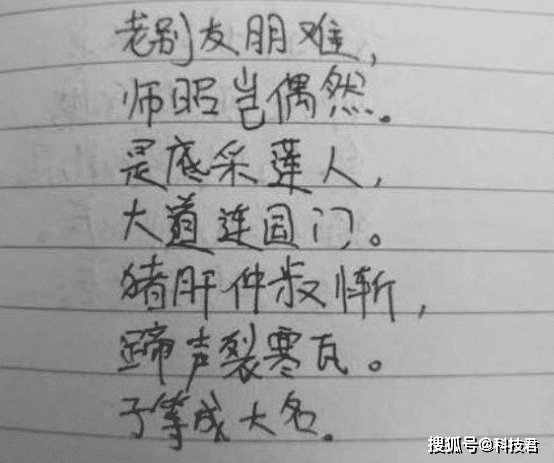 老别友朋难，
师昭岂偶然。
是底采莲人，
大道连国门。
猪肝仲叔惭，
蹄声裂寒瓦。
子等成大名。
搜狐号@科技君